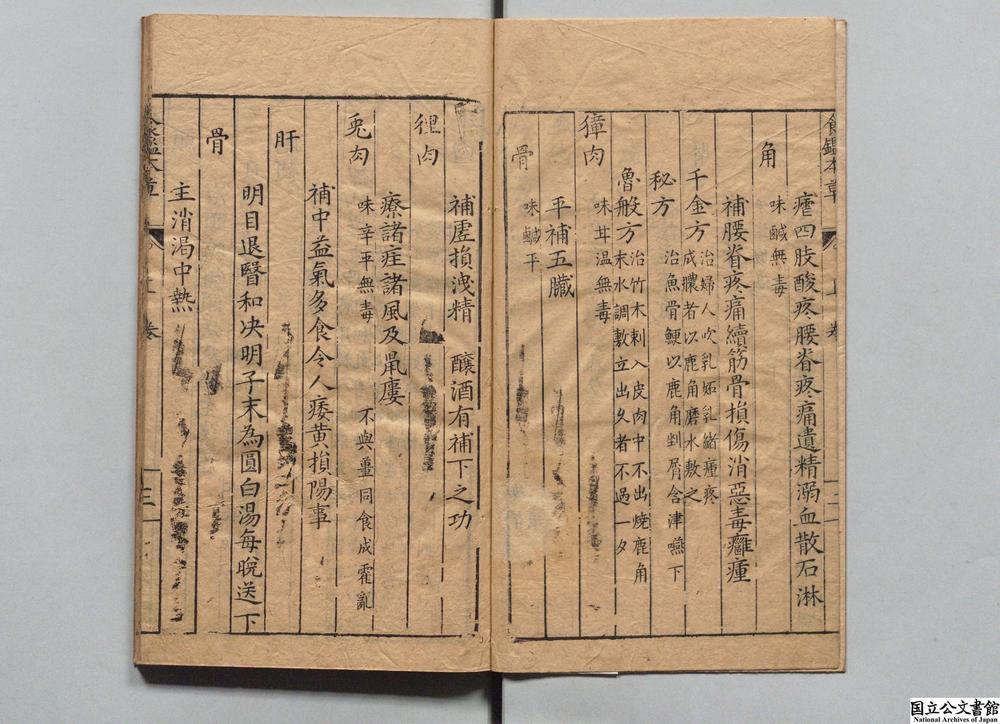 食鑑本草 上卷 二
瘧四肢酸疼腰脊疼痛遺精溺血散石淋
角
味鹹無毒
補腰脊疼痛續筋骨損傷消惡毒癰瘇
千金方
治婦人吹乳妬乳緒瘇疼
成膿者以鹿角磨水敷之
秘方
治魚骨鯁以鹿角剉屑含津嚥下
魯般方
治竹木刺入皮肉中不出燒鹿角
末水調敷立出久者不過一夕
獐肉
味甘温無毒
平補五臟
骨
味鹹平
補虛損洩精 釀酒有補下之功
狸肉
療諸症諸風及鼠廔
兎肉
味辛平無毒 不與薑同食成霍亂
補中益氣多食令人痿黄損陽事
肝
明目退醫和决明子末為圓白湯每晚送下
骨
主消渴中熱
食鑑本草 上卷 三
国立公文書館
National Archives of Japan